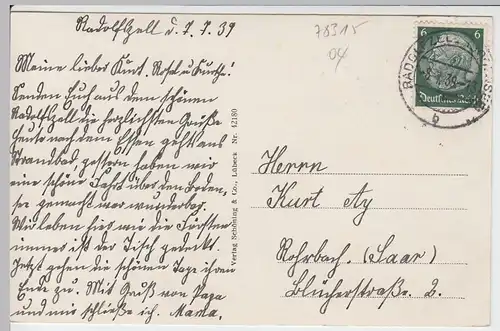 Radolfszell d. 7.7.39
Meine lieben Kurt, Rosel u. Günthe!
Senden Euch aus dem schönen
Radolfszell die herzlichsten Grüße
heute nach dem Essen gehts ans
Strandbad, gestern haben wir
eine schöne Fahrt über den Boden-
see gemacht war wunderbar.
Wir leben hier wie die Fürsten
immer ist der Tisch gedeckt.
Jetzt gehen die schönen Tage ihrem
Ende zu. Mit Gruß von Papa
und uns schließe ich. Mama.
Verlag Schöning & Co., Lübeck Nr. 12180
78315
04
6 6
Deutsches Reich
RADOLFZELL
b
Herrn
Kurt Ay
Rohrbach. (Saar)
Blücherstraße 2.